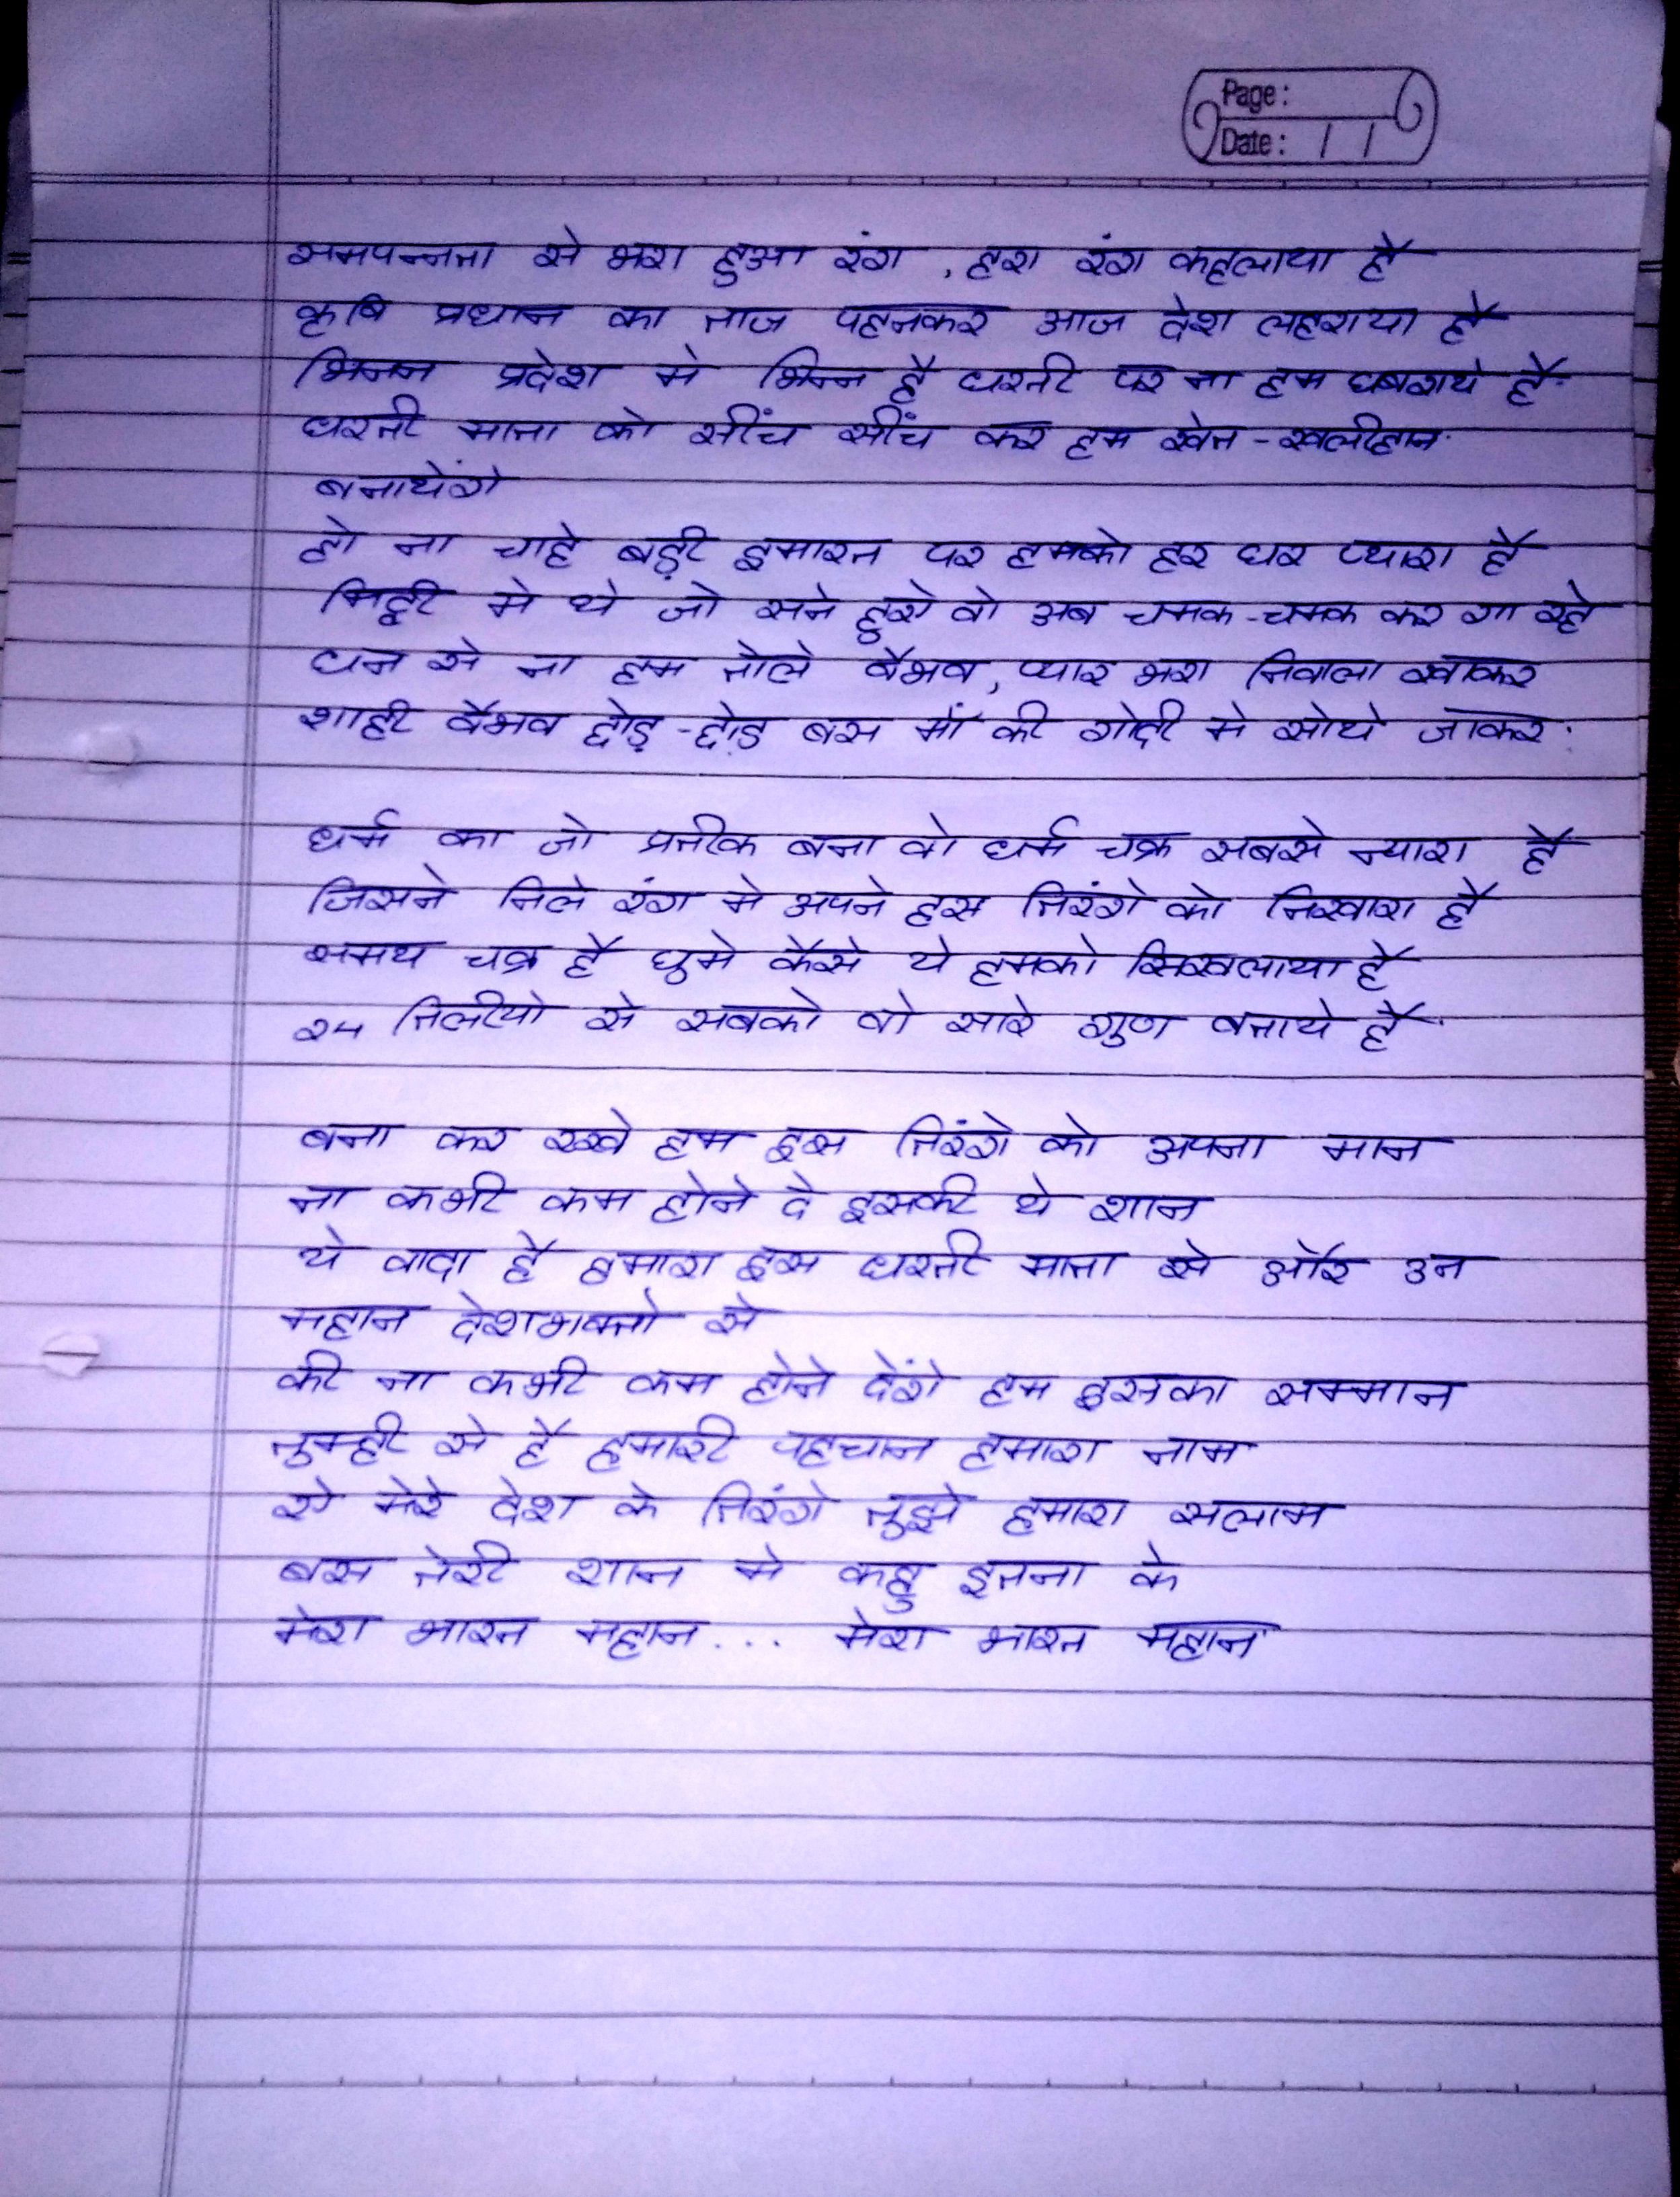 Page:
Date: / /
समपन्नता से भरा हुआ रंग , हरा रंग कहलाया है
कृषि प्रधान का ताज पहनकर आज देश लहराया है
भिन्न प्रदेश मे भिन्न है धरती पर ना हम घबराये है
धरती माता को सींच सींच कर हम खेत - खलीहान
बनायेंगे
हो ना चाहे बड़ी इमारत पर हमको हर घर प्यारा है
मिट्टी मे थे जो सने हुऐ वो अब चमक - चमक कर गा रहे
धन से ना हम तोले वैभव, प्यार भरा निवाला खाकर
शाही वैभव छोड़ - छोड़ बस माँ की गोदी मे सोये जाकर
धर्म का जो प्रतीक बना वो धर्म चक्र सबसे न्यारा है
जिसने निले रंग मे अपने इस तिरंगे को निखारा है
समय चक्र है घुमे कैसे ये हमको सिखलाया है
24 तिलीयो से सबको वो सारे गुण बताये है
बना कर रखे हम इस तिरंगे को अपना मान
ना कभी कम होने दे इसकी ये शान
ये वादा है हमारा इस धरती माता से और उन
महान देशभक्तो से
की ना कभी कम होने देंगे हम इसका सम्मान
तुम्ही से है हमारी पहचान हमारा नाम
ऐ मेरे देश के तिरंगे तुझे हमारा सलाम
बस तेरी शान मे कहु इतना के
मेरा भारत महान ... मेरा भारत महान